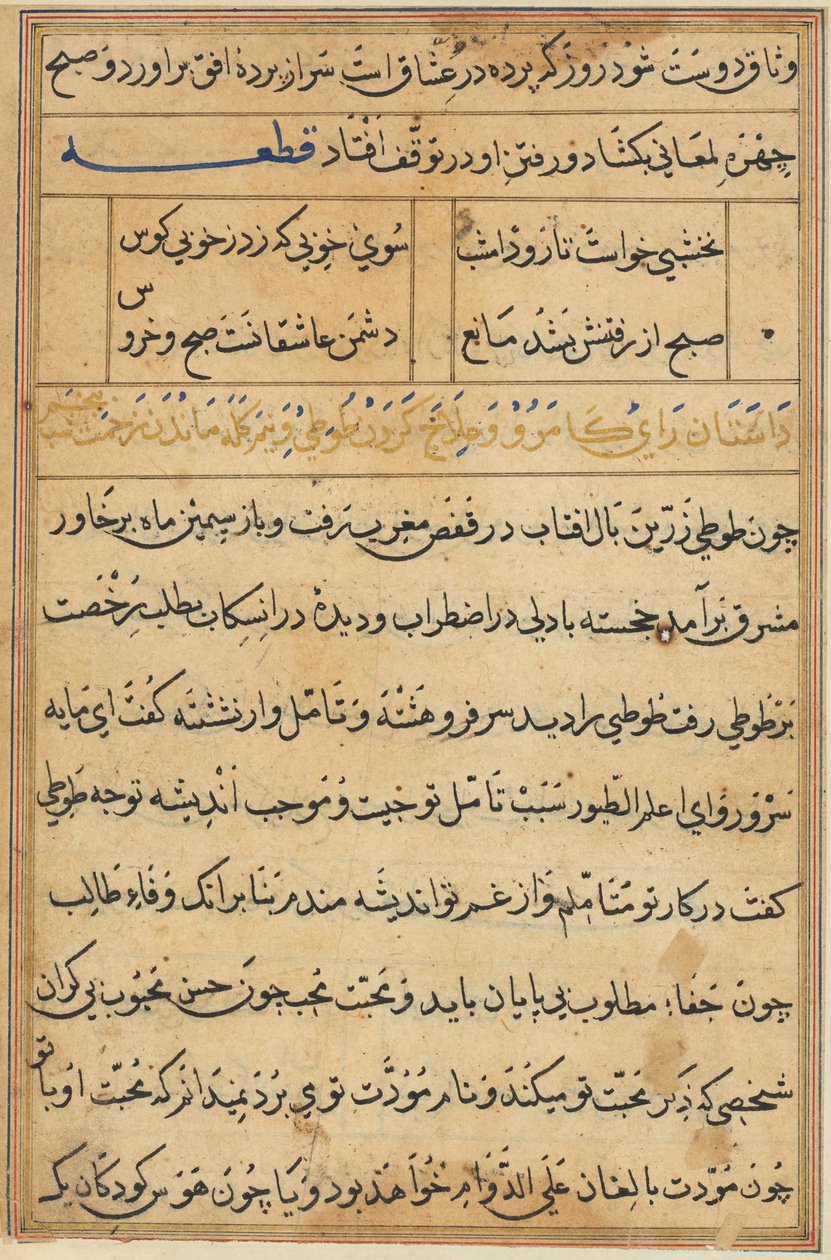 وثاق دوست شود روز که پرده در عشاق است سر از پردهٔ افق براورد و صبح
چهرهٔ لمعانی بکشاد و رفتن او در توقف افتاد قطعه
نخشبی خواست تا رود امشب سوی خوبی که زد ز خوبی کوس
صبح از رفتنش بشد مانع دشمن عاشقانست صبح و خروس
داستان رای کامرو و نکاح کردن طوطی و نیم کاره ماندن زحمت شب پنجم
چون طوطی زرین بال افتاب در قفص مغرب رفت و باز سیمین ماه بر خاور
مشرق برآمد خجسته با دلی در اضطراب و دیدهٔ در انسکاب بطلب رخصت
بر طوطی رفت طوطی را دید سر فرو هشته و تأمل وار نشسته گفت ای مایه
سرور و ای اعلم الطیور سبب تأمل تو چیست و موجب اندیشه تو چه طوطی
گفت در کار تو متأملم و از غم تو اندیشه مندم بنا برانک وفاء طالب
چون جفاء مطلوب بی پایان باید و محبت محب چون حسن محبوب بی کران
شخصی که ذکر محبت تو میکند و نام مودت تو می برد نمیدانم که محبت او با تو
چون مودت بالغان علی الدوام خواهد بود و یا چون هوس کودکان یک